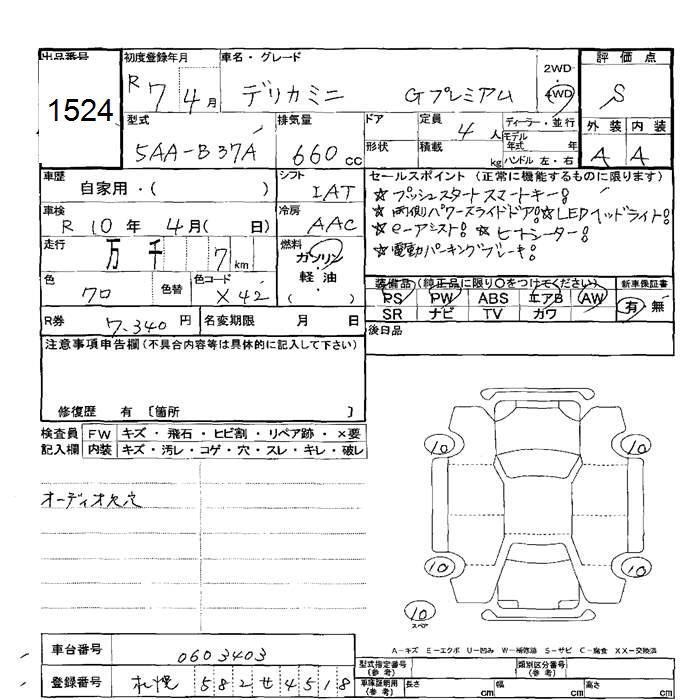 出品番号 初度登録年月 車名・グレード 評価点
1524 R 7 4月 デリカミニ Gプレミアム 2WD・4WD S
型式 排気量 ドア 定員 4人 ディーラー・並行 外装 内装
5AA-B37A 660cc 形状 積載 kg モデル年式 年 ハンドル 左・右 A A
車歴 自家用・( ) シフト IAT セールスポイント(正常に機能するものに限ります)
☆プッシュスタートスマートキー!
車検 R 10年 4月( 日) 冷房 AAC ☆両側パワースライドドア!☆LEDヘッドライト!
☆e-アシスト! ☆ヒートシーター!
走行 万 千 7km 燃料 ガソリン・軽油・( ) ☆電動パーキングブレーキ!
色 クロ 色替 色コード X42 装備品(純正品に限り○をつけてください) 新車保証書
PS PW ABS エアB AW 有・無
SR ナビ TV カワ
R券 7,340円 名変期限 月 日 後日品
注意事項申告欄(不具合内容等は具体的に記入して下さい)
修復歴 有 〔箇所 〕
検査員記入欄 FW キズ・飛石・ヒビ割・リペア跡・×要
内装 キズ・汚レ・コゲ・穴・スレ・キレ・破レ
オーディオ欠穴
10 10
10 10
10
スペア
A-キズ E-エクボ U-凹み W-補修跡 S-サビ C-腐食 XX-交換済
車台番号 0603403 型式指定番号(参考) 類別区分番号(参考)
登録番号 札幌 582 せ 4518 車庫証明用(参考) 長さ cm 幅 cm 高さ cm